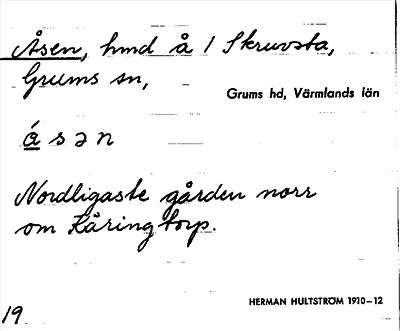 Åsen, hmd å 1 Skruvsta,
Grums sn,
Grums hd, Värmlands län
å s ə n
Nordligaste gården norr
om Käringtorp.
HERMAN HULTSTRÖM 1910–12
19